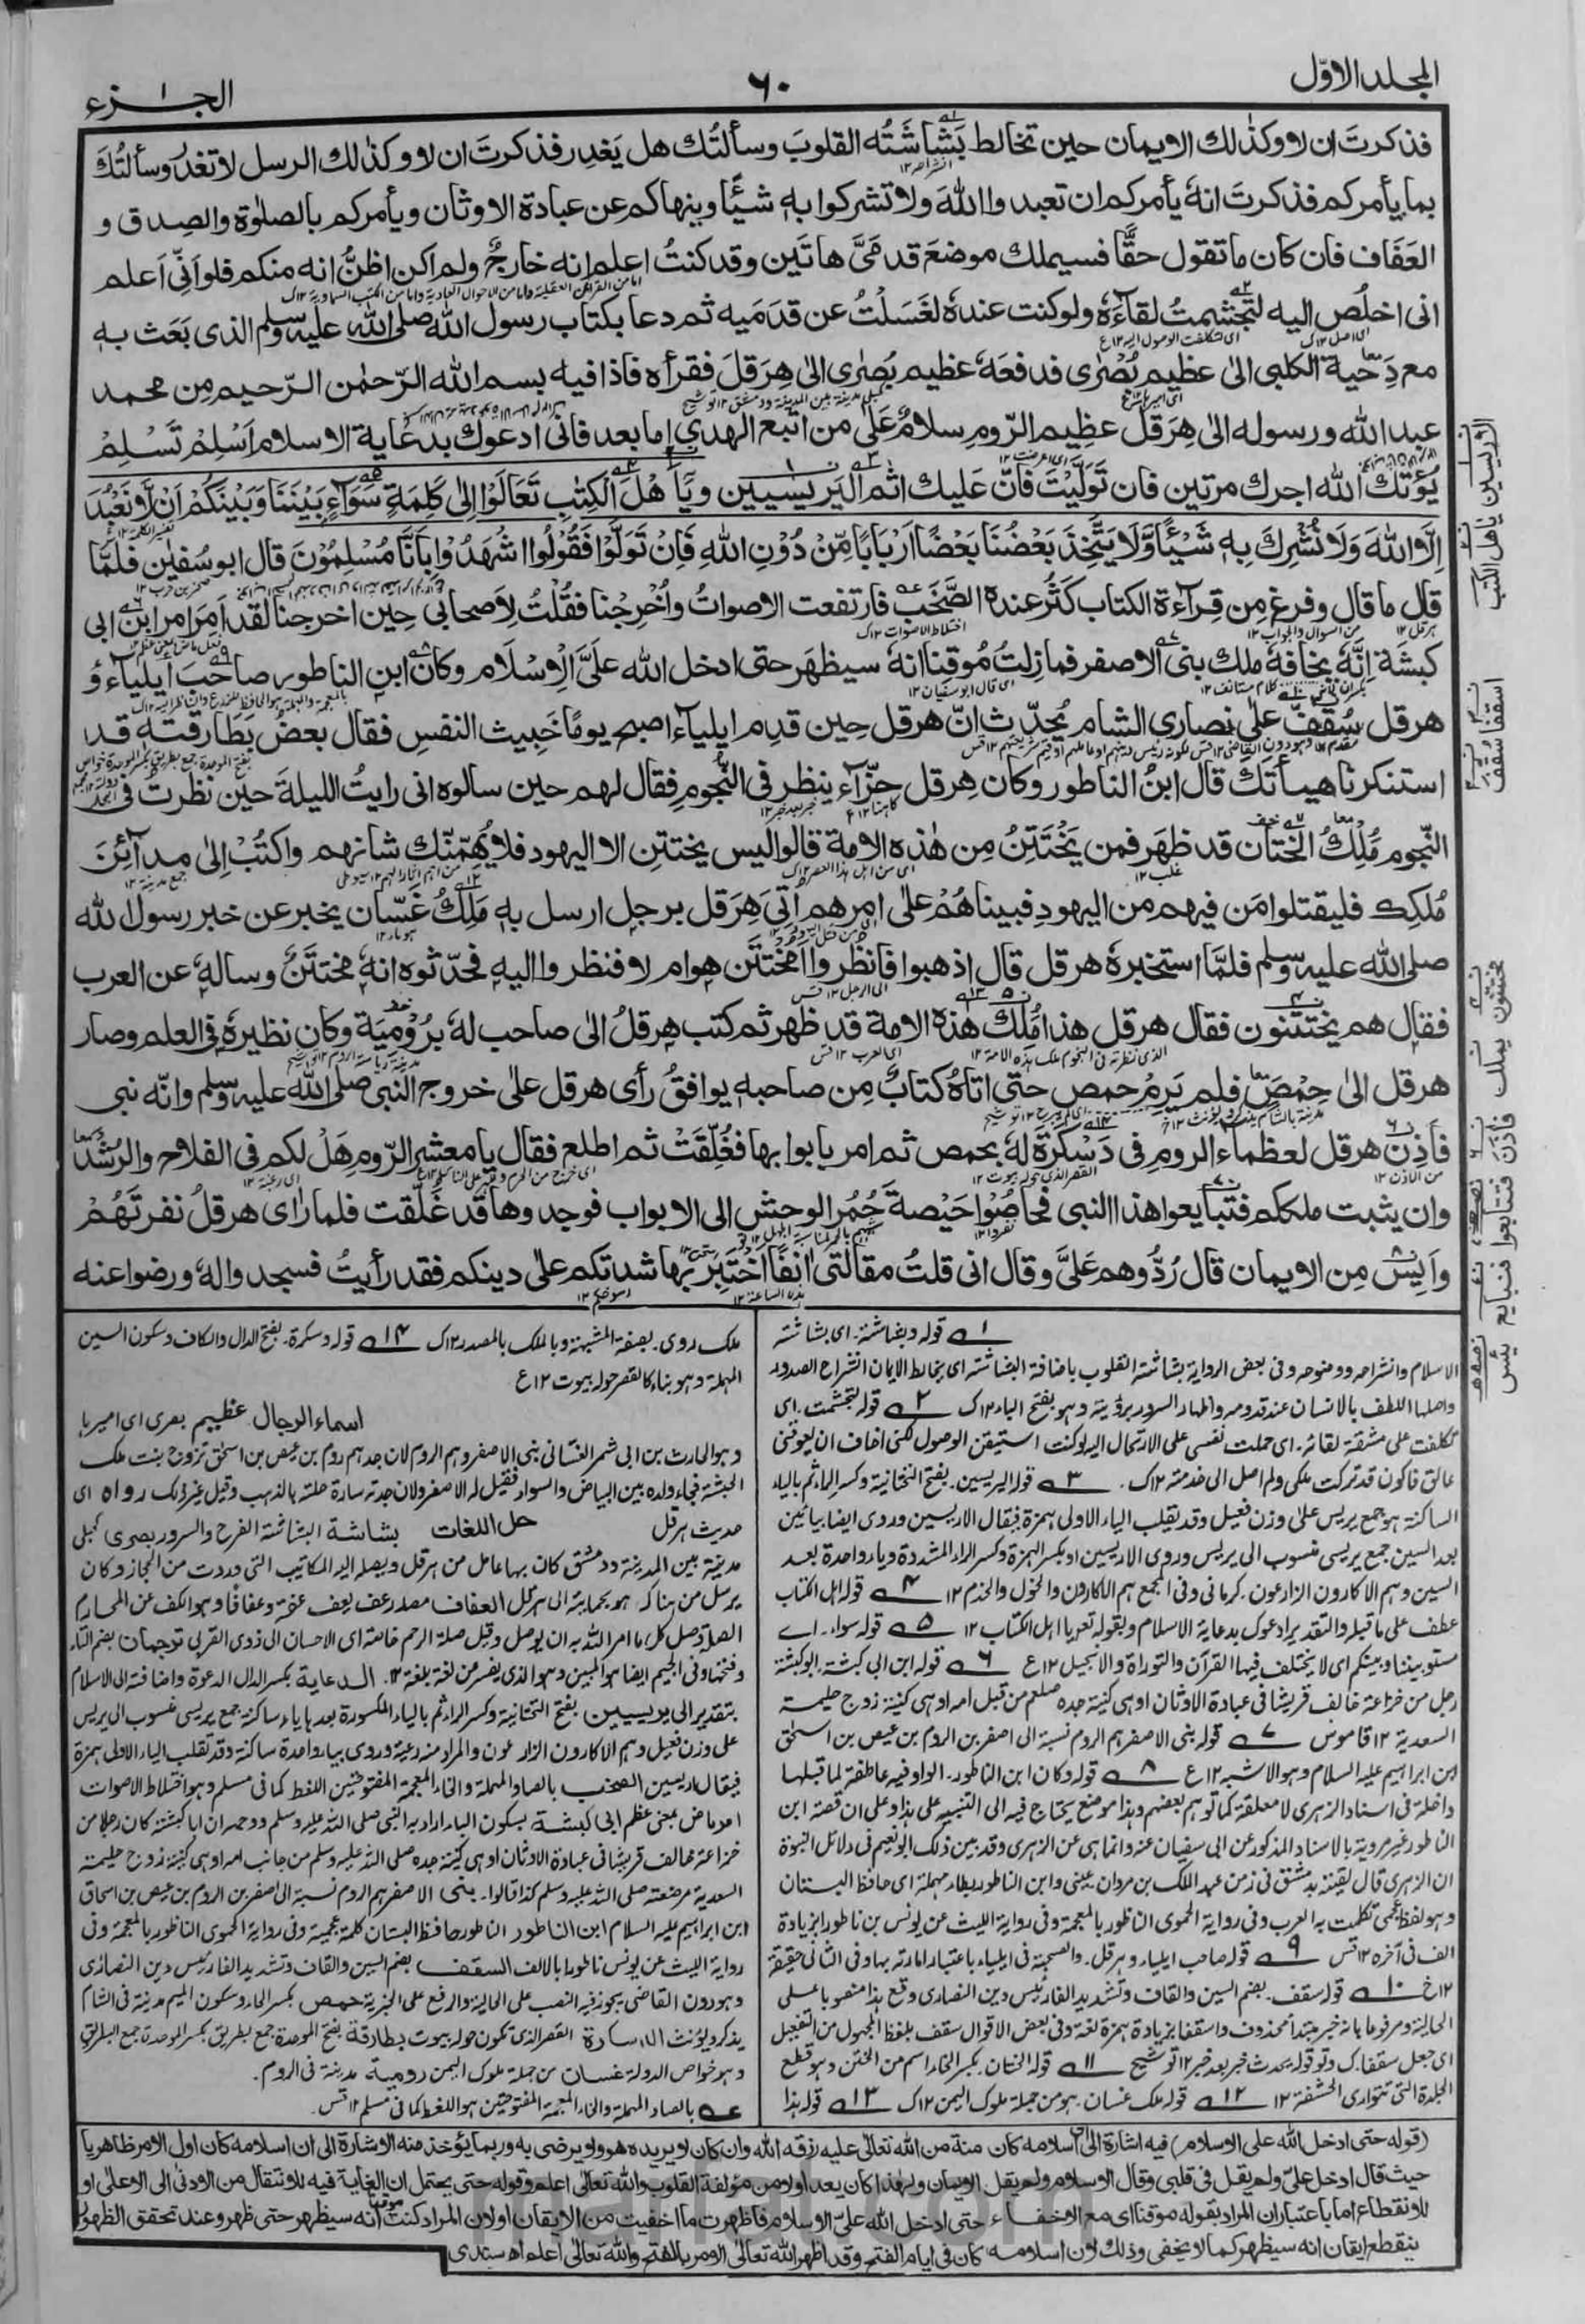 المجلد الاوّل
٦٠
الجزء ١
فذكرتَ ان لا وكذٰلك الايمان حين تخالط بَشَاشَتُه القلوبَ وسألتُك هل يَغدِر فذكرتَ ان لا وكذٰلك الرسل لا تغدِرُ وسألتُكَ
بما يأمركم فذكرتَ انهٗ يأمركم ان تعبدوا اللهَ ولا تشركوا بهٖ شيئًا وينهاكم عن عبادة الاوثان ويأمركم بالصلوٰة والصِدق و
العَفَاف فان كان ما تقول حقًّا فسيملك موضعَ قدمَيَّ هاتَين وقد كنتُ اعلم انه خارجٌ ولم اكن اظنُّ انه منكم فلو اَنّي اَعلم
انى اخلُص اليه لتجشمتُ لقاءَهٗ ولو كنت عندهٗ لغَسَلْتُ عن قدَمَيه ثم دعا بكتاب رسول الله صلى الله عليه وسلم الذى بَعَث بهٖ
مع دِحية الكلبى الىٰ عظيم بُصْرٰى فدفعَهٗ عظيم بُصرٰى الىٰ هِرَقلَ فقرأه فاذا فيه بسم الله الرّحمٰن الرّحيم مِن محمد
عبد الله ورسوله الىٰ هِرَقل عظيم الرّومِ سلامٌ عَلىٰ من اتبع الهدىٰ اما بعد فانى ادعوك بدعَاية الاسلام اَسْلِمْ تَسْلِمْ
يُؤتك الله اجرك مرتين فان تَوَلَّيتَ فانَّ عَليك اثم اليَرِيسيين ويآ اَهْلَ الْكِتٰبِ تَعَالَوْا اِلىٰ كَلِمَةٍ سَوَآءٍ بَيْنَنَا وَبَيْنَكُمْ اَنْ لَّا نَعْبُدَ
اِلَّا اللهَ وَلَا نُشْرِكَ بِهٖ شَيْئًا وَّلَا يَتَّخِذَ بَعْضُنَا بَعْضًا اَرْبَابًا مِّنْ دُوْنِ اللهِ فَاِنْ تَوَلَّوْا فَقُوْلُوا اشْهَدُوْا بِاَنَّا مُسْلِمُوْنَ قال ابو سُفيٰن فلمَّا
قال ما قال وفرغ مِن قِرآءة الكتاب كَثُر عنده الصَّخَب فارتفعت الاصواتُ واُخْرِجْنا فقُلْتُ لِاَصحابى حِين اخرجنا لقد اَمِرَ امر ابن ابى
كبشَة اِنَّهٗ يخافهٗ ملك بنى الاصفر فما زِلتُ مُوقِنًا انهٗ سيظهَر حتى ادخل الله علىَّ الْاِسْلَام وكان ابن الناطور صاحبَ ايلياء و
هرقل سُقِفَّ علىٰ نصارى الشام يُحدِّث انّ هرقل حِين قدِم ايليآء اصبح يومًا خَبِيث النفسِ فقال بعضُ بَطَارقته قد
استنكرنا هيئتَكَ قال ابنُ الناطور وكان هِرقل حزّآء ينظر فى النجومِ فقال لهم حين سالوه انى رايتُ الليلةَ حين نظرت فى
النّجوم مَلِكُ الخِتَان قد ظهَر فمن يَخْتَتِنُ مِن هٰذه الامة قالوا ليس يختتِن الا اليهود فلا يُهِمَّنَّك شانهم واكتُبْ اِلىٰ مدآئِنَ
مُلكِك فليقتلوا مَن فيهم من اليهودِ فبيناهُمْ علىٰ امرهم اُتِىَ هَرَقل برجلٍ ارسل بهٖ مَلِكُ غَسّان يخبر عن خبر رسول الله
صلى الله عليه وسلم فلمَّا استخبرهٗ هرقل قال اذهبوا فانظروا اَمختَتَن هوام لا فنظروا اليهِ فحدّثوه انهٗ مختَتَنٌ وسالهٗ عن العرب
فقال هم يَختَتنون فقال هرقل هذا مُلك هذه الامة قد ظهَر ثم كتب هرقلُ الىٰ صاحب لهٗ برُوْمِيَة وكان نظيرهٗ فى العلم وصار
هرقل الىٰ حِمْصَ فلم يَرِمْ حمص حتى اتاهُ كتابٌ مِن صاحبهٖ يوافقُ رأى هرقل علىٰ خروج النبى صلى الله عليه وسلم وانّه نبى
فَاَذِنَ هرقل لعظماء الروم فى دَسكَرَةٍ لهٗ بحمص ثم امر بابوابها فغُلّقَتْ ثم اطلع فقال يا معشر الرّوم هَلْ لكم فى الفلاح والرُشد
وان يثبت ملككم فتبايعوا هذا النبى فحاصُوْا حَيْصةَ حُمُر الوحشِ الى الابواب فوجدوها قد غلّقت فلما راٰى هرقلُ نفرتَهُمْ
واَيِسَ مِن الايمان قال رُدُّوهم عَلَىَّ وقال انى قلتُ مقالتى اٰنفًا اَخْتَبِر بها شدتكم علىٰ دينكم فقد رأيتُ فسجدوا لهٗ ورضوا عنه
١ قوله بشاشته. اى بشاشة
الاسلام وانشراحه ووضوحه وفى بعض الرواية بشاشة القلوب باضافة البشاشة اى يخالط الايمان انشراح الصدور
واصلها اللطف بالانسان عند قدومه واظهار السرور برؤيته وهو بفتح الباء ١٢ك ٢ قوله لتجشمت. اى
تكلفت على مشقة لقائه. اى حملت نفسى على الارتحال اليه لو كنت استيقن الوصول لكنى اخاف ان يعوقنى
عائق فاكون قد تركت ملكى ولم اصل الى خدمته ١٢ك. ٣ قوله اليريسين. بفتح التحتانية وكسر الراء ثم بالياء
الساكنة هو جمع يريس على وزن فعيل وقد يقلب الياء الاولى بهمزة فيقال الاريسين وروى ايضا بيائين
بعد السين جمع يريسى منسوب الى يريس وروى الاريسين او بكسر الهمزة وكسر الراء المشددة وياء واحدة بعد
السين وهم الاكارون الزارعون. كرمانى وفى المجمع هم الاكارون والخول والخدم ١٢ ٤ قوله اهل الكتاب
عطف على ما قبله والتقدير ادعوك بدعاية الاسلام وبقوله تعه يا اهل الكتاب ١٢ ٥ قوله سواء. اے
مستو بيننا وبينكم اى لا يختلف فيها القرآن والتوراة والانجيل ١٢ع ٦ قوله ابن ابى كبشة. ابو كبشة
رجل من خزاعة خالف قريشا فى عبادة الاوثان او هى كنية جده صلعم من قبل امه او هى كنية زوج حليمة
السعدية ١٢ قاموس ٧ قوله بنى الاصفر هم الروم نسبة الى اصفر بن الروم بن عيص بن اسحٰق
ابن ابراهيم عليه السلام وهو الاشبه ١٢ع ٨ قوله وكان ابن الناطور. الواو فيه عاطفة لما قبلها
داخلة فى اسناد الزهرى لا معلقة كما توهم بعضهم وهذا موضع يحتاج فيه الى التنبيه على هذا وعلى ان قصة ابن
الناطور غير مروية بالاسناد المذكور عن ابى سفيان عنه وانما هى عن الزهرى وقد بين ذلك ابو نعيم فى دلائل النبوة
ان الزهرى قال لقيته بدمشق فى زمن عبد الملك بن مروان. عينى وابن الناطور بطاء مهملة اى حافظ البستان
وهو لفظ عجمى تكلمت به العرب وفى رواية الحموى الناظور بالمعجمة وفى رواية الليث عن يونس بن ناطورا بزيادة
الف فى آخره ١٢ قس ٩ قوله صاحب ايلياء وهرقل. والصحبة فى ايلياء باعتبار امارته بها وفى الثانى حقيقة
١٢خ ١٠ قوله سقف. بضم السين والقاف وتشديد الفاء رئيس دين النصارى وقع هذا منصوبا على
الحالية ومرفوعا بانه خبر مبتدأ محذوف واسقفا بزيادة همزة لغة وفى بعض الاقوال سقف بلفظ المجهول من التفعيل
اى جعل سقفا. ك وتو قوله يحدث خبر بعد خبر ١٢ توشيح ١١ قوله الختان. بكسر الخاء اسم من الختن وهو قطع
الجلدة التى توارى الحشفة ١٢ ١٢ قوله ملك غسان. هو من جملة ملوك اليمن ١٢ك ١٣ قوله هذا
ملك. روى بصفة المشبهة وبالملك بالمصدر ١٢ك ١٤ قوله دسكرة. بفتح الدال والكاف وسكون السين
المهملة وهو بناء كالقصر حوله بيوت ١٢ع
اسماء الرجال عظيم بصرى اى اميرها
وهو الحارث بن ابى شمر الغسانى بنى الاصفر وهم الروم لان جدهم روم بن عيص بن اسحٰق تزوج بنت ملك
الحبشة فجاء ولده بين البياض والسواد فقيل له الاصفر ولان جدته سارة حلته بالذهب وقيل غير ذلك رواه اى
حديث هرقل حل اللغات بشاشة البشاشة الفرح والسرور بصرى كحبلى
مدينة بين المدينة ودمشق كان بها عامل من هرقل ويصله اليه المكاتيب التى وردت من الحجاز وكان
يرسل من هناك هو بحمايته الى هرقل العفاف مصدر عف يعف عفة وعفافا وهو الكف عن المحارم
الصلة وصل كل ما امر الله به ان يوصل وقيل صلة الرحم خاصة اى الاحسان الى ذوى القربى ترجمان بضم التاء
وفتحها وفى الجيم ايضا هو المبين وهو الذى يفسر من لغة بلغة ١٢. الدعاية بكسر الدال الدعوة واضافة الى الاسلام
بتقدير الى يريسيين بفتح التحتانية وكسر الراء ثم بالياء المكسورة بعدها ياء ساكنة جمع يريسى منسوب الى يريس
على وزن فعيل وهم الاكارون الزارعون والمراد منه رعية وروى بياء واحدة ساكنة وقد تقلب الياء الاولى بهمزة
فيقال اريسين الصخب بالصاد المهملة والخاء المعجمة المفتوحتين اللغط كما فى مسلم وهو اختلاط الاصوات
امر ماض بمعنى عظم ابى كبشة بسكون الباء اراد به النبى صلى الله عليه وسلم ووجهه ان ابا كبشة كان رجلا من
خزاعة مخالف قريشا فى عبادة الاوثان او هى كنية جده صلى الله عليه وسلم من جانب امه او هى كنية زوج حليمة
السعدية مرضعته صلى الله عليه وسلم كذا قالوا. بنى الاصفر هم الروم نسبة الى اصفر بن الروم بن عيص بن اسحاق
ابن ابراهيم عليه السلام ابن الناطور الناطور حافظ البستان كلمة عجمية وفى رواية الحموى الناظور بالمعجمة وفى
رواية الليث عن يونس ناطورا بالالف السقف بضم السين والقاف وتشديد الفاء رئيس دين النصارى
وهو دون القاضى يجوز فيه النصب على الحالية والرفع على الخبرية حمص بكسر الحاء وسكون الميم مدينة فى الشام
يذكر ويؤنث القصر الذى تكون حوله بيوت بطارقة بفتح الموحدة جمع بطريق بكسر الموحدة جمع البطريق
وهو خواص الدولة غسان من جملة ملوك اليمن رومية مدينة فى الروم.
عه بالصاد المهملة والخاء المعجمة المفتوحتين هو اللغط كما فى مسلم ١٢ قس.
(قوله حتى ادخل الله على الاسلام) فيه اشارة الى ان اسلامه كان منة من الله تعالى عليه رزقه الله وان كان لا يريده هو ولا يرضى به وربما يؤخذ منه الاشارة الى ان اسلامه كان اول الامر ظاهريا
حيث قال ادخل علىّ ولم يقل فى قلبى وقال الاسلام ولم يقل الايمان ولهذا كان يعد اولا من مؤلفة القلوب والله تعالى اعلم وقوله حتى يحتمل ان الغاية فيه للانتقال من الادنى الى الاعلى او
للانقطاع اما باعتبار ان المراد بقوله موقنا اى مع الاخفاء حتى ادخل الله علىّ الاسلام فاظهرت ما اخفيت من الايقان او لان المراد كنت موقنا انه سيظهر حتى ظهر وعند تحقق الظهور
ينقطع ايقان انه سيظهر كما لا يخفى وذلك لان اسلامه كان فى ايام الفتح وقد اظهر الله تعالى الامر بالفتح والله تعالى اعلم اه سندى
الاريسين يا هل الكتب
اسقفا سُقِف
مختتنون يملك فأذن فتتابعوا فنبايع يئس